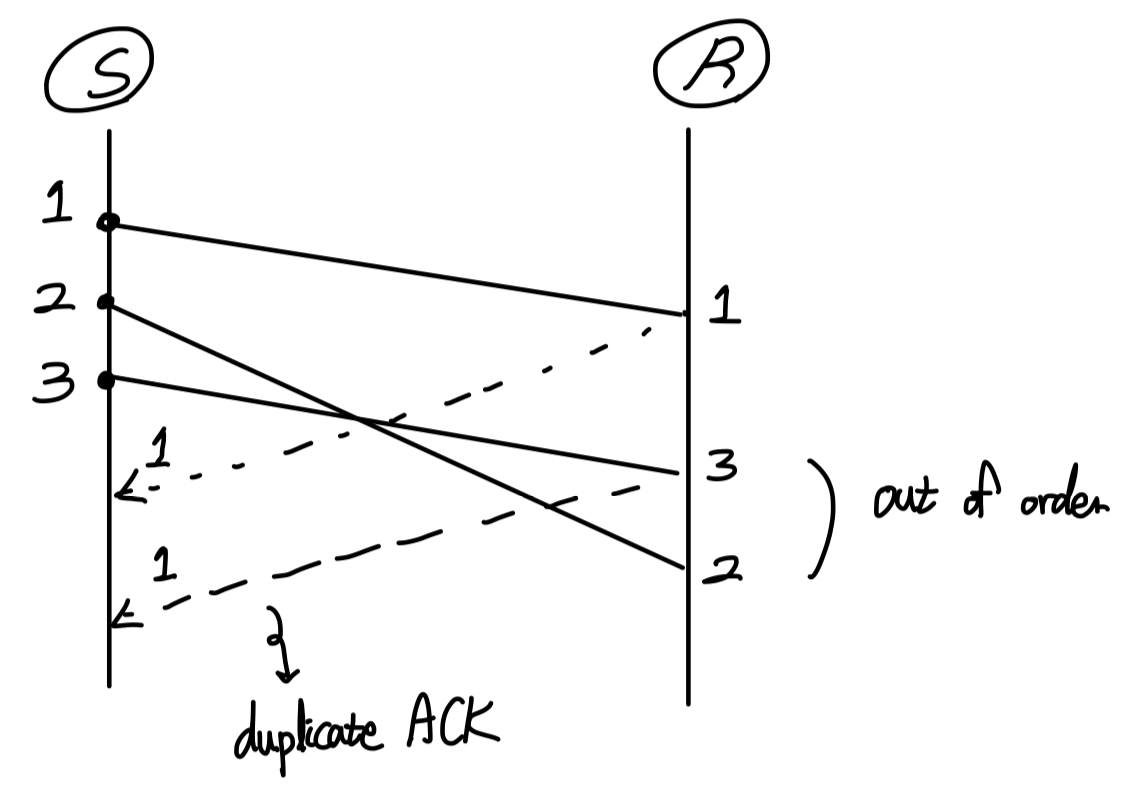 S R
1
2
1
3
1
3
out of order
1
2
duplicate ACK